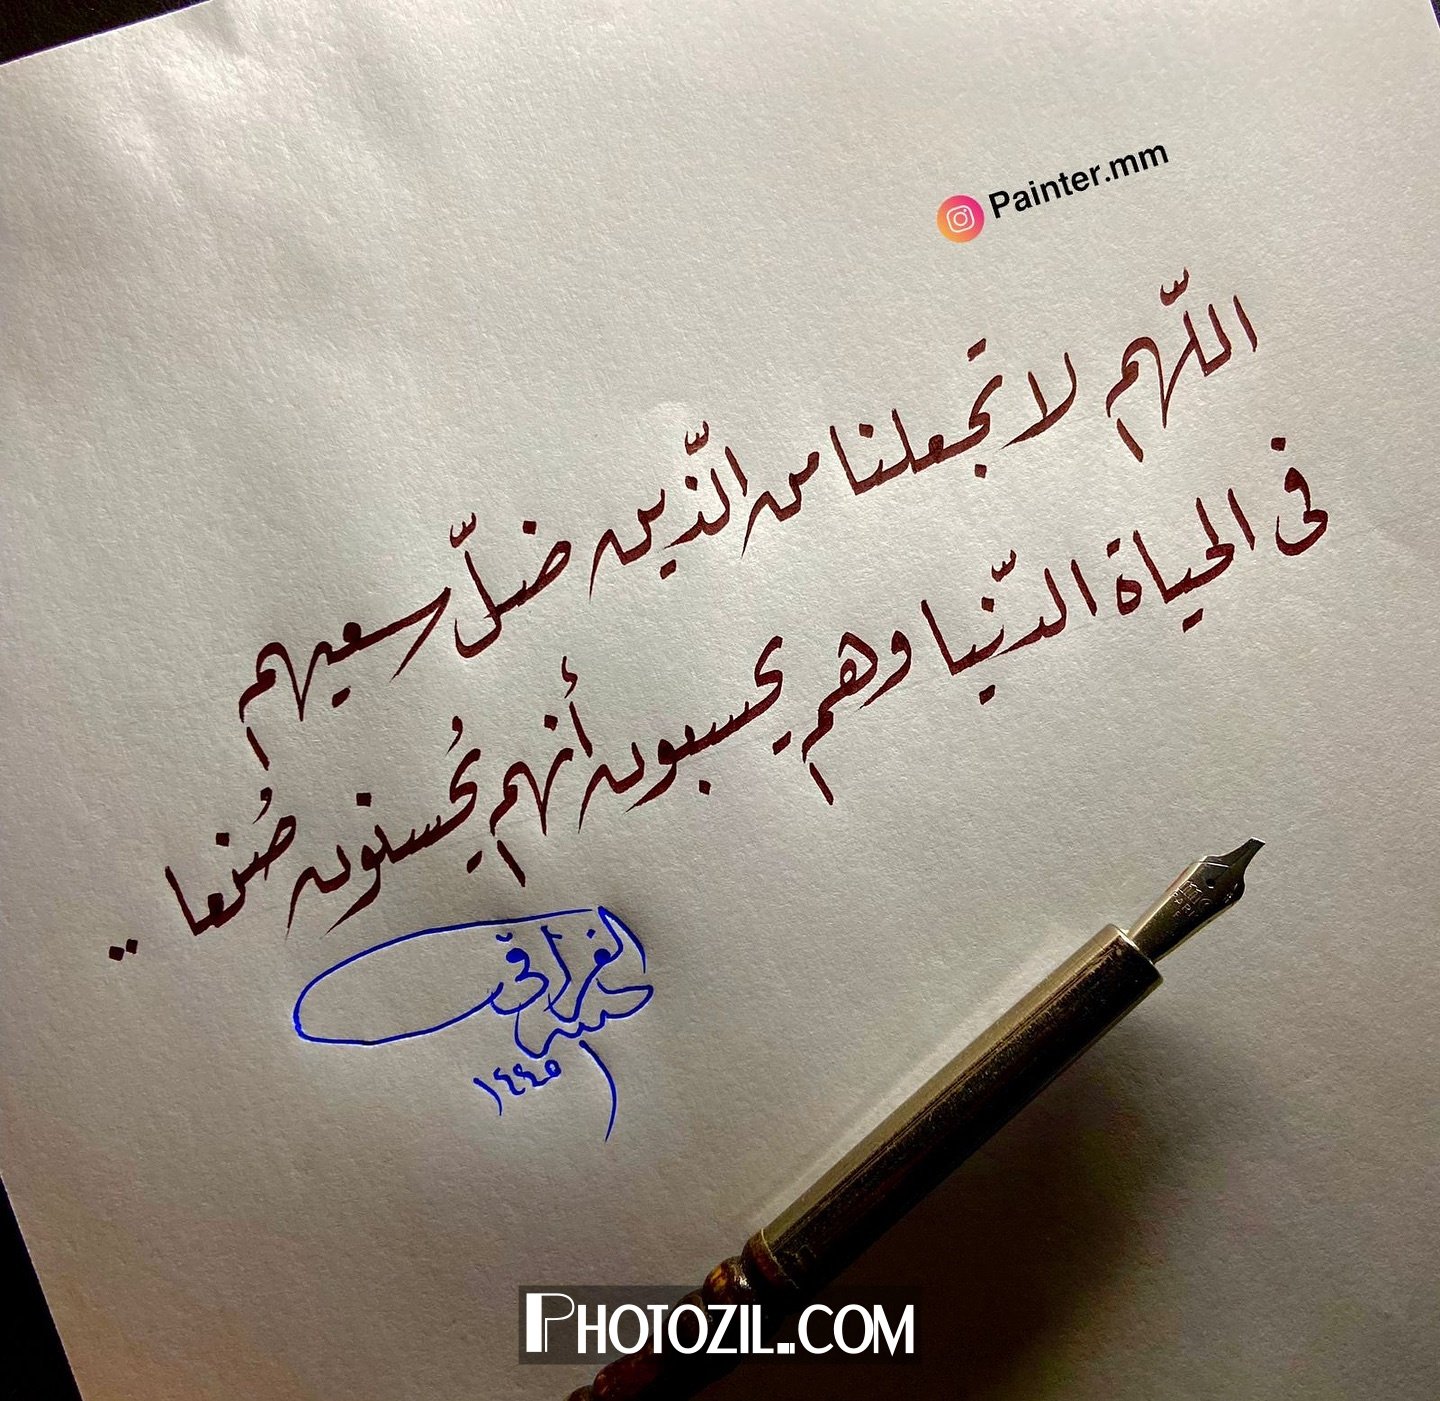 Painter.mm
اللّهم لا تجعلنا من الّذين ضلّ سعيهم
في الحياة الدّنيا وهم يحسبون أنهم يُحسنون صُنعا ..
١٤٤٥
PHOTOZIL.COM